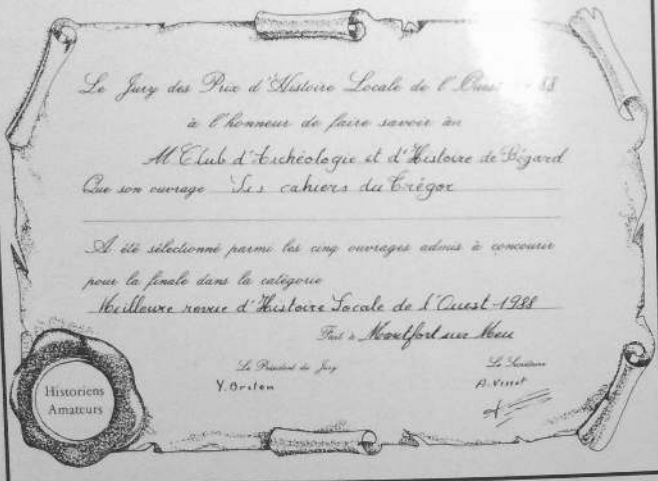 Le Jury des Prix d'Histoire Locale de l'Ouest 88
à l'honneur de faire savoir au
M Club d'Archéologie et d'Histoire de Bégard
Que son ouvrage Les cahiers du Trégor
A été sélectionné parmi les cinq ouvrages admis à concourir
pour la finale dans la catégorie
Meilleure revue d'Histoire Locale de l'Ouest-1988
Fait à Montfort sur Meu
Le Président du Jury
Le Secrétaire
Y.
A.
Historiens
Amateurs